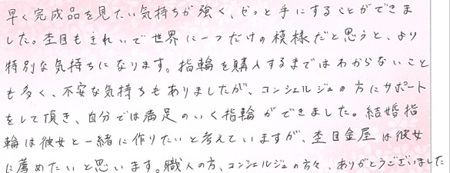 早く完成品を見たい気持ちが強く、ど っと手にすることができま
した。杢目もきれいで世界に一つだけの模様だと思うと、より
特別な気持ちになります。指輪を購入するまではわからないこと
も多く、不安な気持ちもありましたが、コンシェルジュの方にサポート
をして頂き、自分では満足のいく指輪ができました。結婚指
輪は彼女と一緒に作りたいと考えていますが、杢目金屋は彼女
に薦めたいと思います。職人の方、コンシェルジュの方々、ありがとうございました